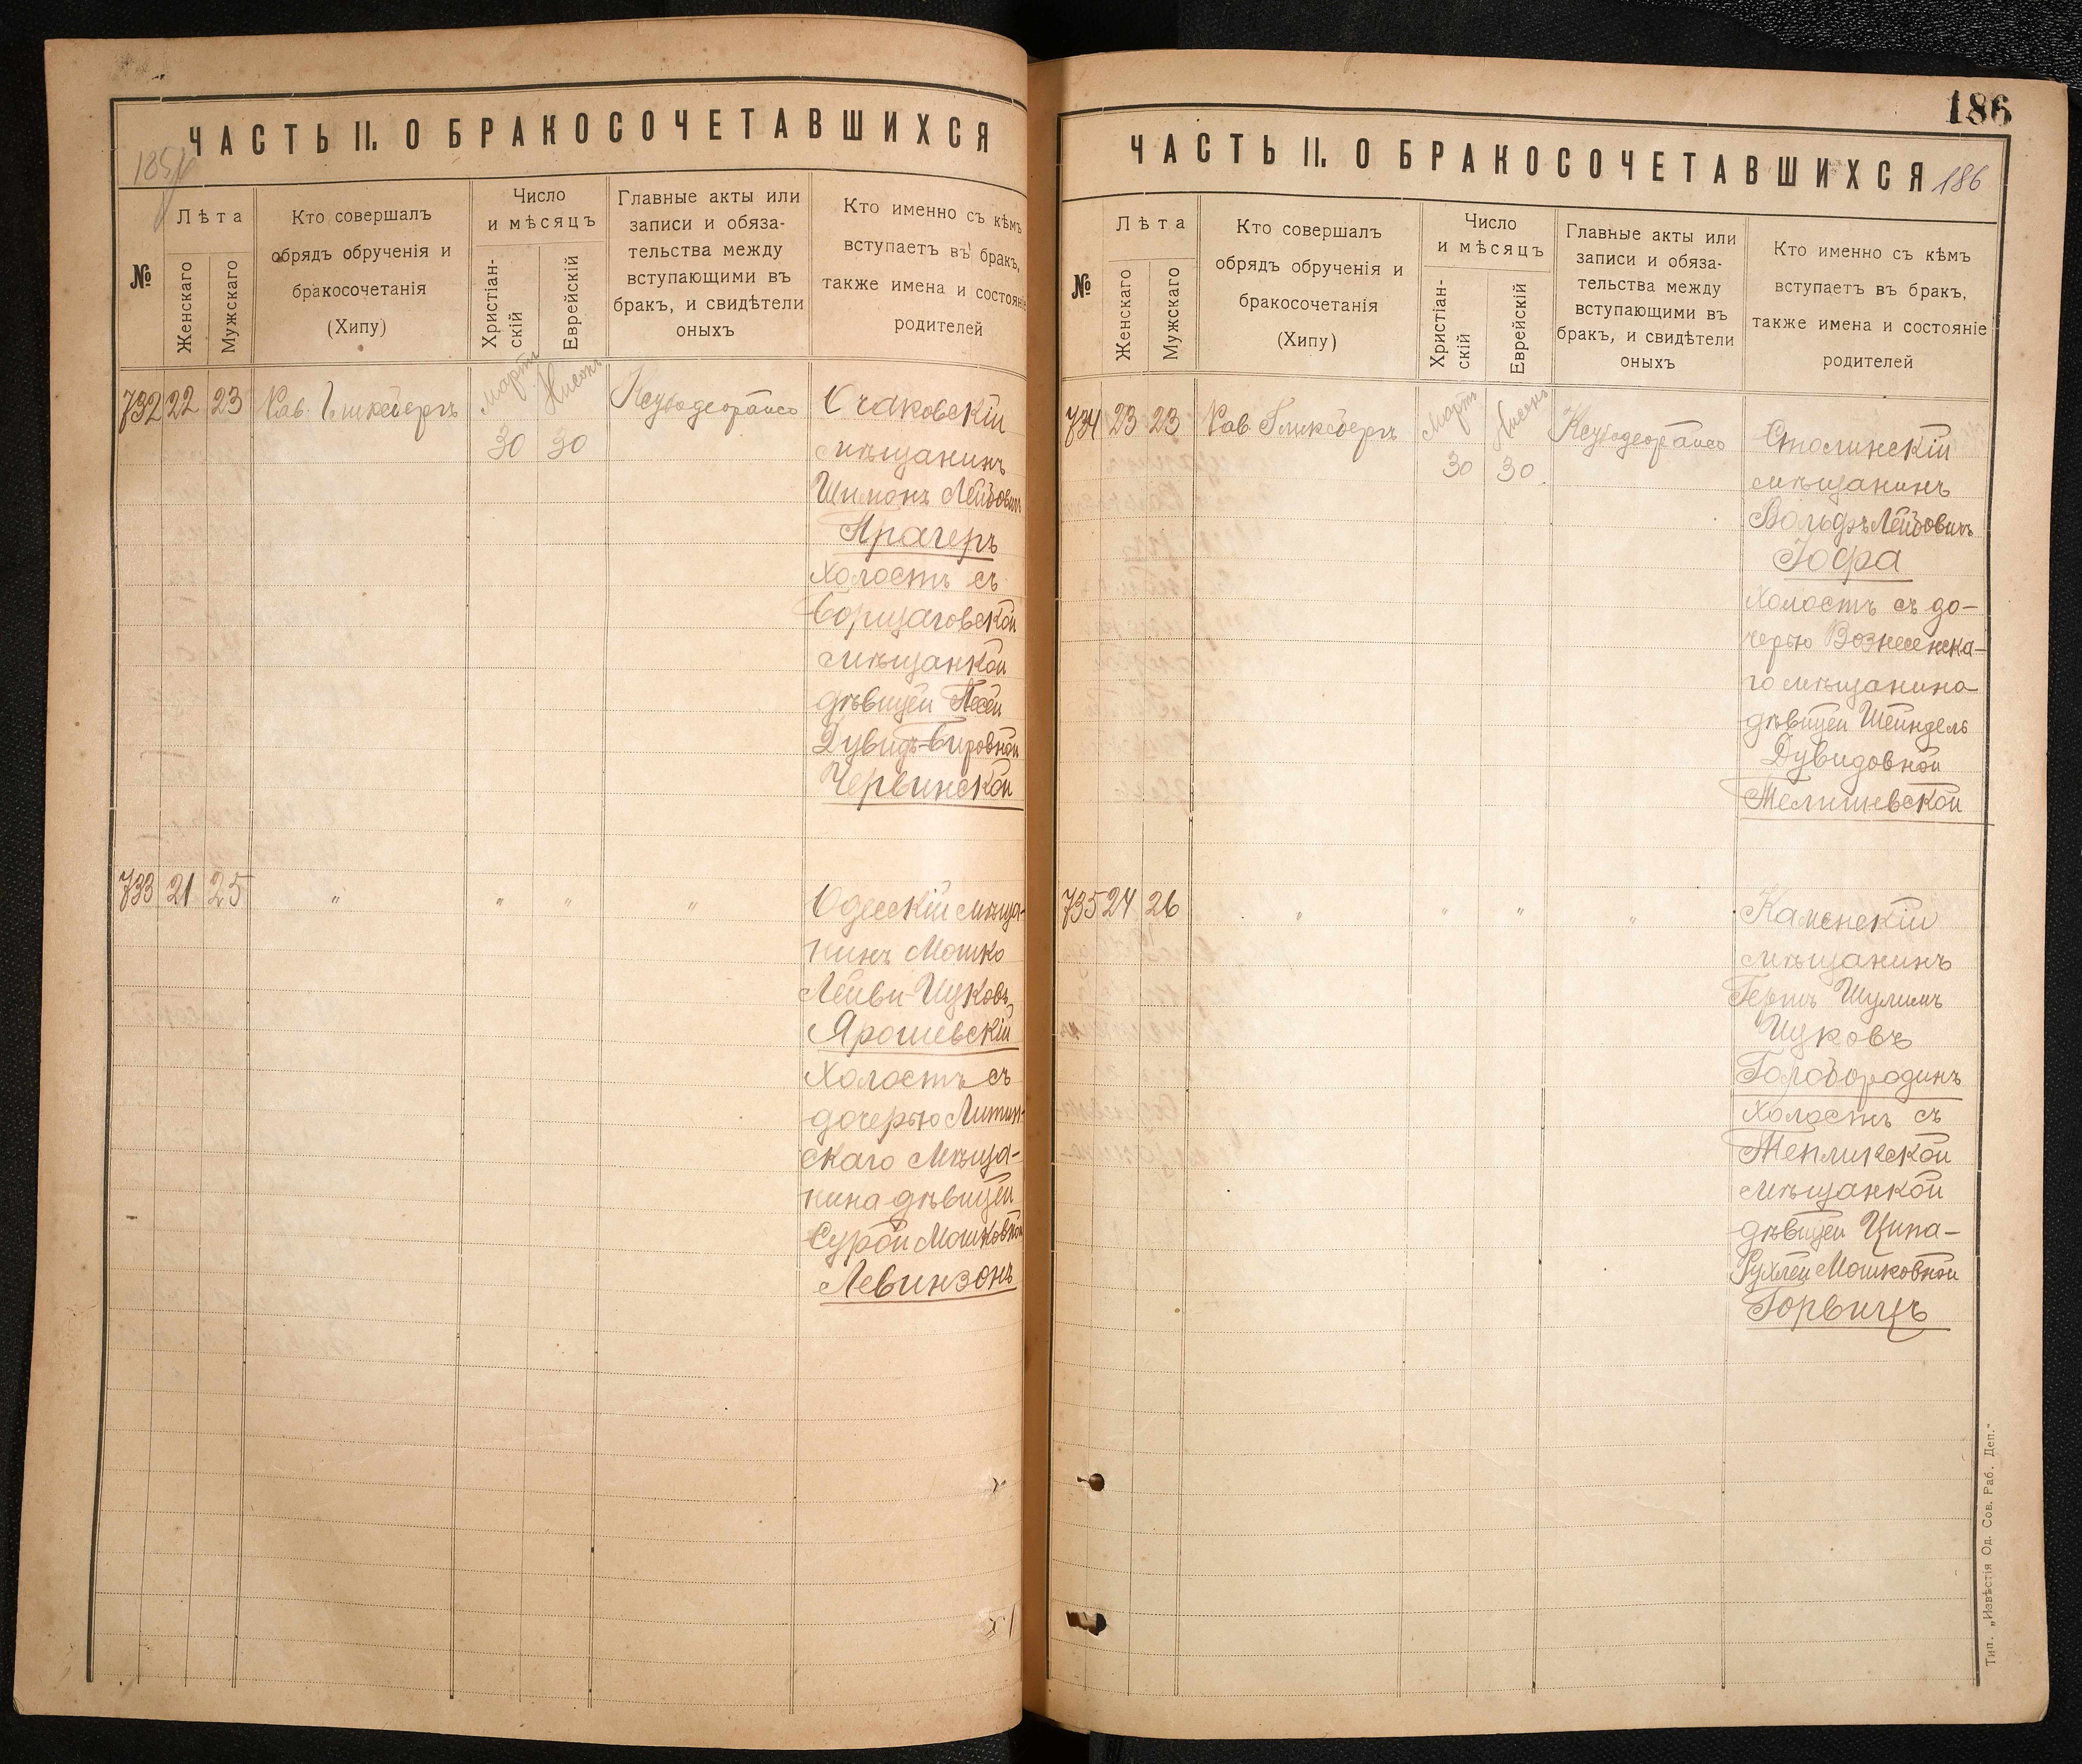 ЧАСТЬ II. О БРАКОСОЧЕТАВШИХСЯ
185
№
Лѣта
Женскаго
Мужскаго
Кто совершалъ
обрядъ обрученія и
бракосочетанія
(Хипу)
Число
и мѣсяцъ
Христіан-
скій
Еврейскій
Главные акты или
записи и обяза-
тельства между
вступающими въ
бракъ, и свидѣтели
оныхъ
Кто именно съ кѣмъ
вступаетъ въ бракъ,
также имена и состояніе
родителей
732 22 23 Рав. Гликсбергъ Мартъ Нисонъ
30 30
Очаковскій
мѣщанинъ
Шимонъ Лейбовичъ
Прагеръ
Холостъ съ
Борщаговской
мѣщанкой
дѣвицей Песей
Дувидъ-Беровной
Червинской
733 21 25 " " " "
Одесскій мѣща-
нинъ Мошко
Лейви-Ицковъ
Ярошевскій
Холостъ съ
дочерью Литин-
скаго Мѣща-
нина дѣвицей
Сурой Мошковной
Левинзонъ
186
ЧАСТЬ II. О БРАКОСОЧЕТАВШИХСЯ
186
№
Лѣта
Женскаго
Мужскаго
Кто совершалъ
обрядъ обрученія и
бракосочетанія
(Хипу)
Число
и мѣсяцъ
Христіан-
скій
Еврейскій
Главные акты или
записи и обяза-
тельства между
вступающими въ
бракъ, и свидѣтели
оныхъ
Кто именно съ кѣмъ
вступаетъ въ бракъ,
также имена и состояніе
родителей
734 23 23 Рав. Гликсбергъ Мартъ Нисонъ
30 30
Столинскій
мѣщанинъ
Вольфъ Лейбовичъ
Іофа
Холостъ съ до-
черью Вознесенска-
го мѣщанина
дѣвицей Шейндель
Дувидовной
Телишевской
735 24 26 " " " "
Каменскій
мѣщанинъ
Гершъ Шулимъ
Ицковъ
Голобородинъ
Холостъ съ
Тепликской
мѣщанкой
дѣвицей Ципа-
Рухлей Мошковной
Горвицъ
Тип. „Извѣстія Од. Сов. Раб. Деп."